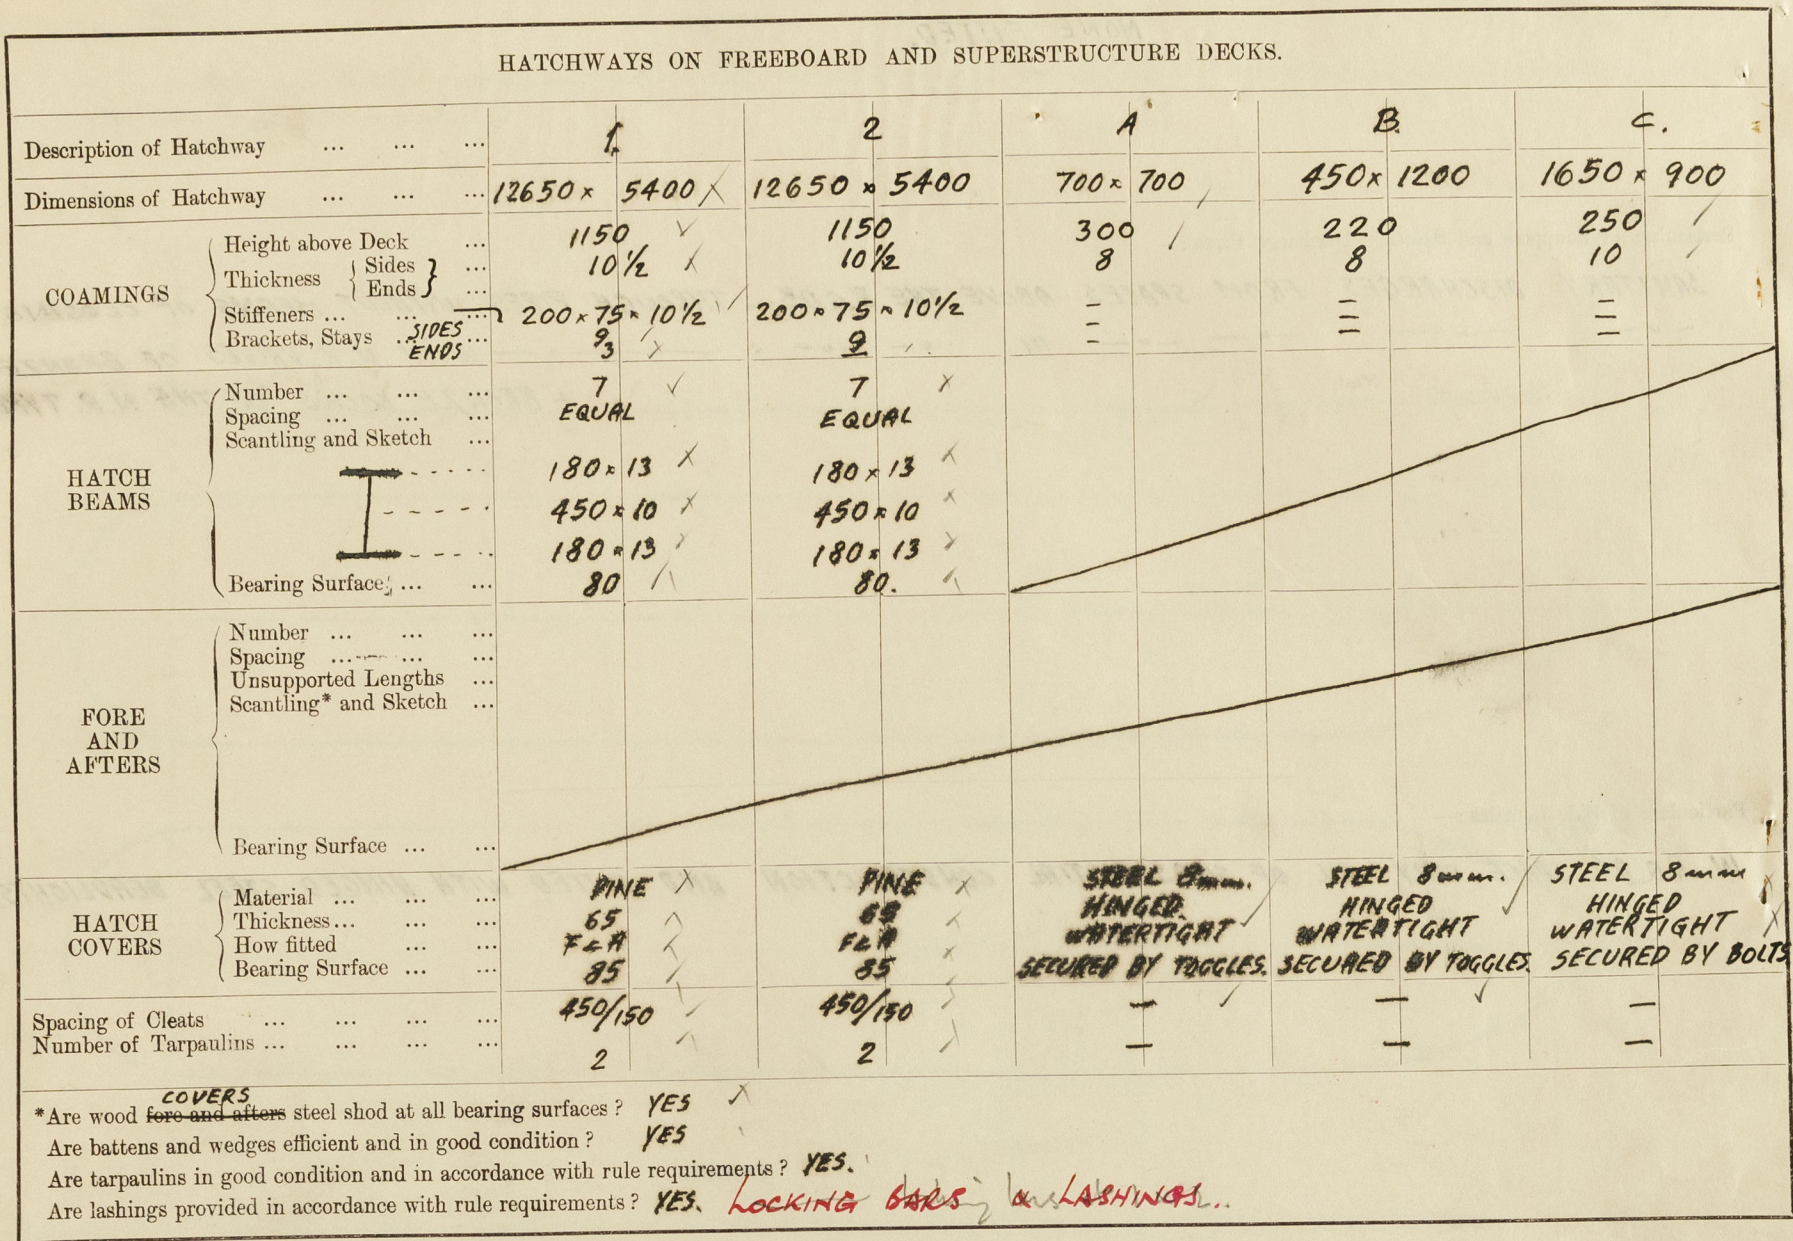 HATCHWAYS ON FREEBOARD AND SUPERSTRUCTURE DECKS.
Description of Hatchway ... ... ... 1. 2 A B. C.
Dimensions of Hatchway ... ... ... 12650 x 5400 12650 x 5400 700 x 700 450 x 1200 1650 x 900
COAMINGS
Height above Deck ... 1150 1150 300 220 250
Thickness { Sides } ... 10 1/2 10 1/2 8 8 10
{ Ends } ...
Stiffeners ... ... ... 200 x 75 x 10 1/2 200 x 75 x 10 1/2 — — —
Brackets, Stays ... SIDES ... 9 9 — — —
ENDS 3 — — —
HATCH BEAMS
Number ... ... ... 7 7
Spacing ... ... ... EQUAL EQUAL
Scantling and Sketch ...
180 x 13 180 x 13
450 x 10 450 x 10
180 x 13 180 x 13
Bearing Surface ... ... 80 80.
FORE AND AFTERS
Number ... ... ...
Spacing ... ... ...
Unsupported Lengths ...
Scantling* and Sketch ...
Bearing Surface ... ...
HATCH COVERS
Material ... ... ... PINE PINE STEEL 8mm. STEEL 8mm. STEEL 8mm
Thickness ... ... ... 65 65 HINGED. HINGED HINGED
How fitted ... ... F & A F & A WATERTIGHT WATERTIGHT WATERTIGHT
Bearing Surface ... ... 85 85 SECURED BY TOGGLES. SECURED BY TOGGLES. SECURED BY BOLTS
Spacing of Cleats ... ... ... ... 450/150 450/150 — — —
Number of Tarpaulins ... ... ... ... 2 2 — — —
COVERS
*Are wood fore and afters steel shod at all bearing surfaces ? YES
Are battens and wedges efficient and in good condition ? YES
Are tarpaulins in good condition and in accordance with rule requirements ? YES.
Are lashings provided in accordance with rule requirements ? YES. LOCKING BARS & LASHINGS.